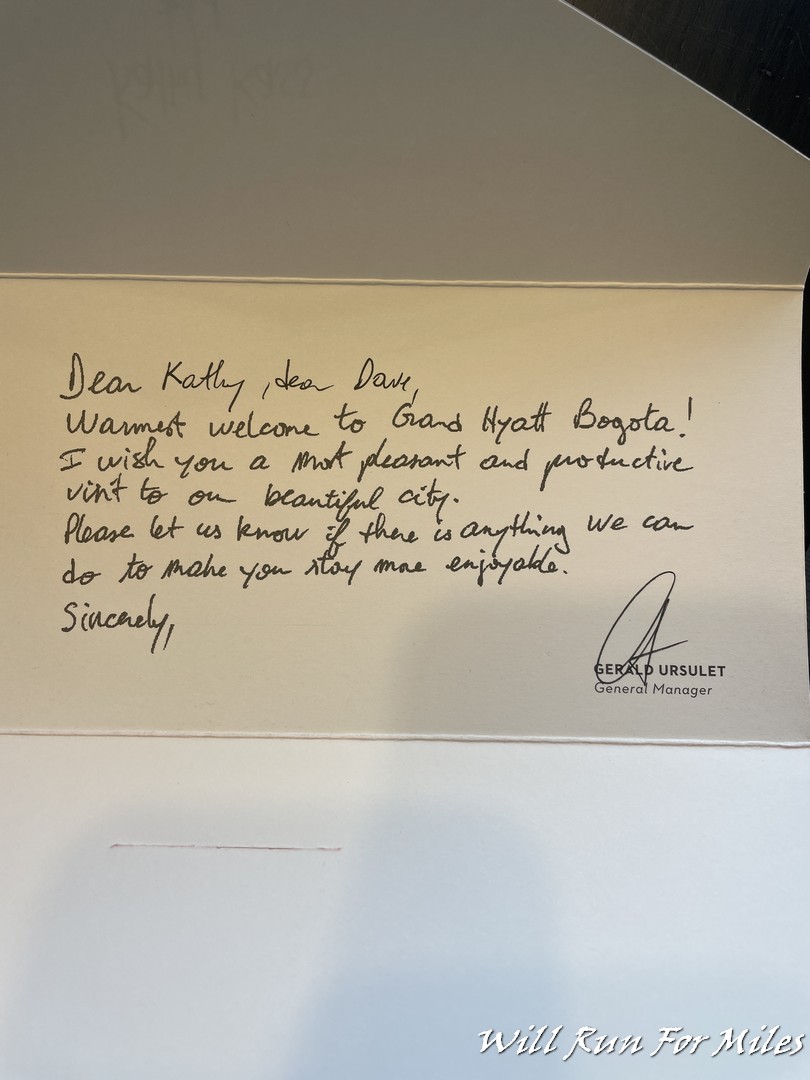 Dear Kathy, dear Dave,
Warmest welcome to Grand Hyatt Bogota!
I wish you a most pleasant and productive
visit to our beautiful city.
Please let us know if there is anything we can
do to make your stay more enjoyable.
Sincerely,
GERALD URSULET
General Manager
Will Run For Miles